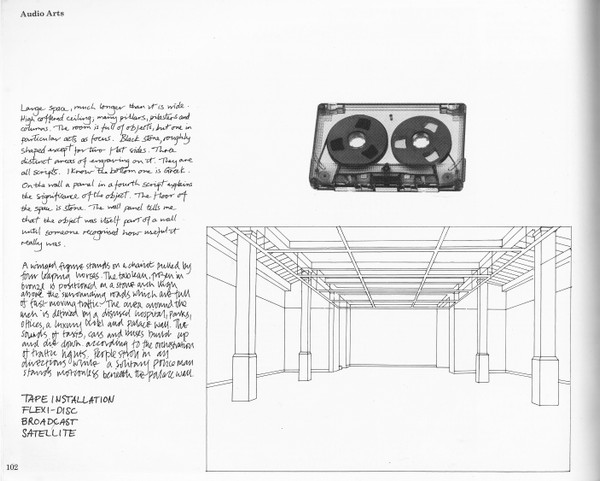 Audio Arts
Large space, much longer than it is wide.
High coffered ceiling, many pillars, pilasters and
columns. The room is full of objects, but one in
particular acts as focus. Black stone, roughly
shaped except for two flat sides. Three
distinct areas of engraving on it. They are
all scripts. I know the bottom one is Greek.
On the wall a panel in a fourth script explains
the significance of the object. The floor of
the space is stone. The wall panel tells me
that the object was itself part of a wall
until someone recognised how useful it
really was.
A winged figure stands on a chariot pulled by
four leaping horses. The tableau, frozen in
bronze is positioned on a stone arch high
above the surrounding roads which are full
of fast moving traffic. The area around the
arch is defined by a disused hospital, banks,
offices, a luxury hotel and palace wall. The
sounds of taxis, cars and buses build up
and die down according to the orchestration
of traffic lights. People stroll in all
directions while a solitary policeman
stands motionless beneath the palace wall.
TAPE INSTALLATION
FLEXI-DISC
BROADCAST
SATELLITE
102